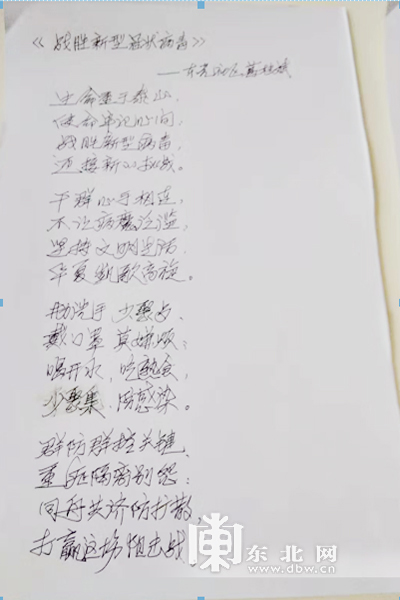 《战胜新型冠状病毒》
生命重于泰山，
使命牢记心间，
战胜新型病毒，
迎接新的挑战。
干群心手相连，
不让病魔泛滥，
坚持文明生活，
华夏凯歌高旋。
勤洗手 少聚占，
戴口罩 莫嫌烦，
喝开水，吃熟食，
少聚集，防感染。
群防群控关键，
重症隔离别怨，
同舟共济防扩散，
打赢这场阻击战。
东北网
www.dbw.cn